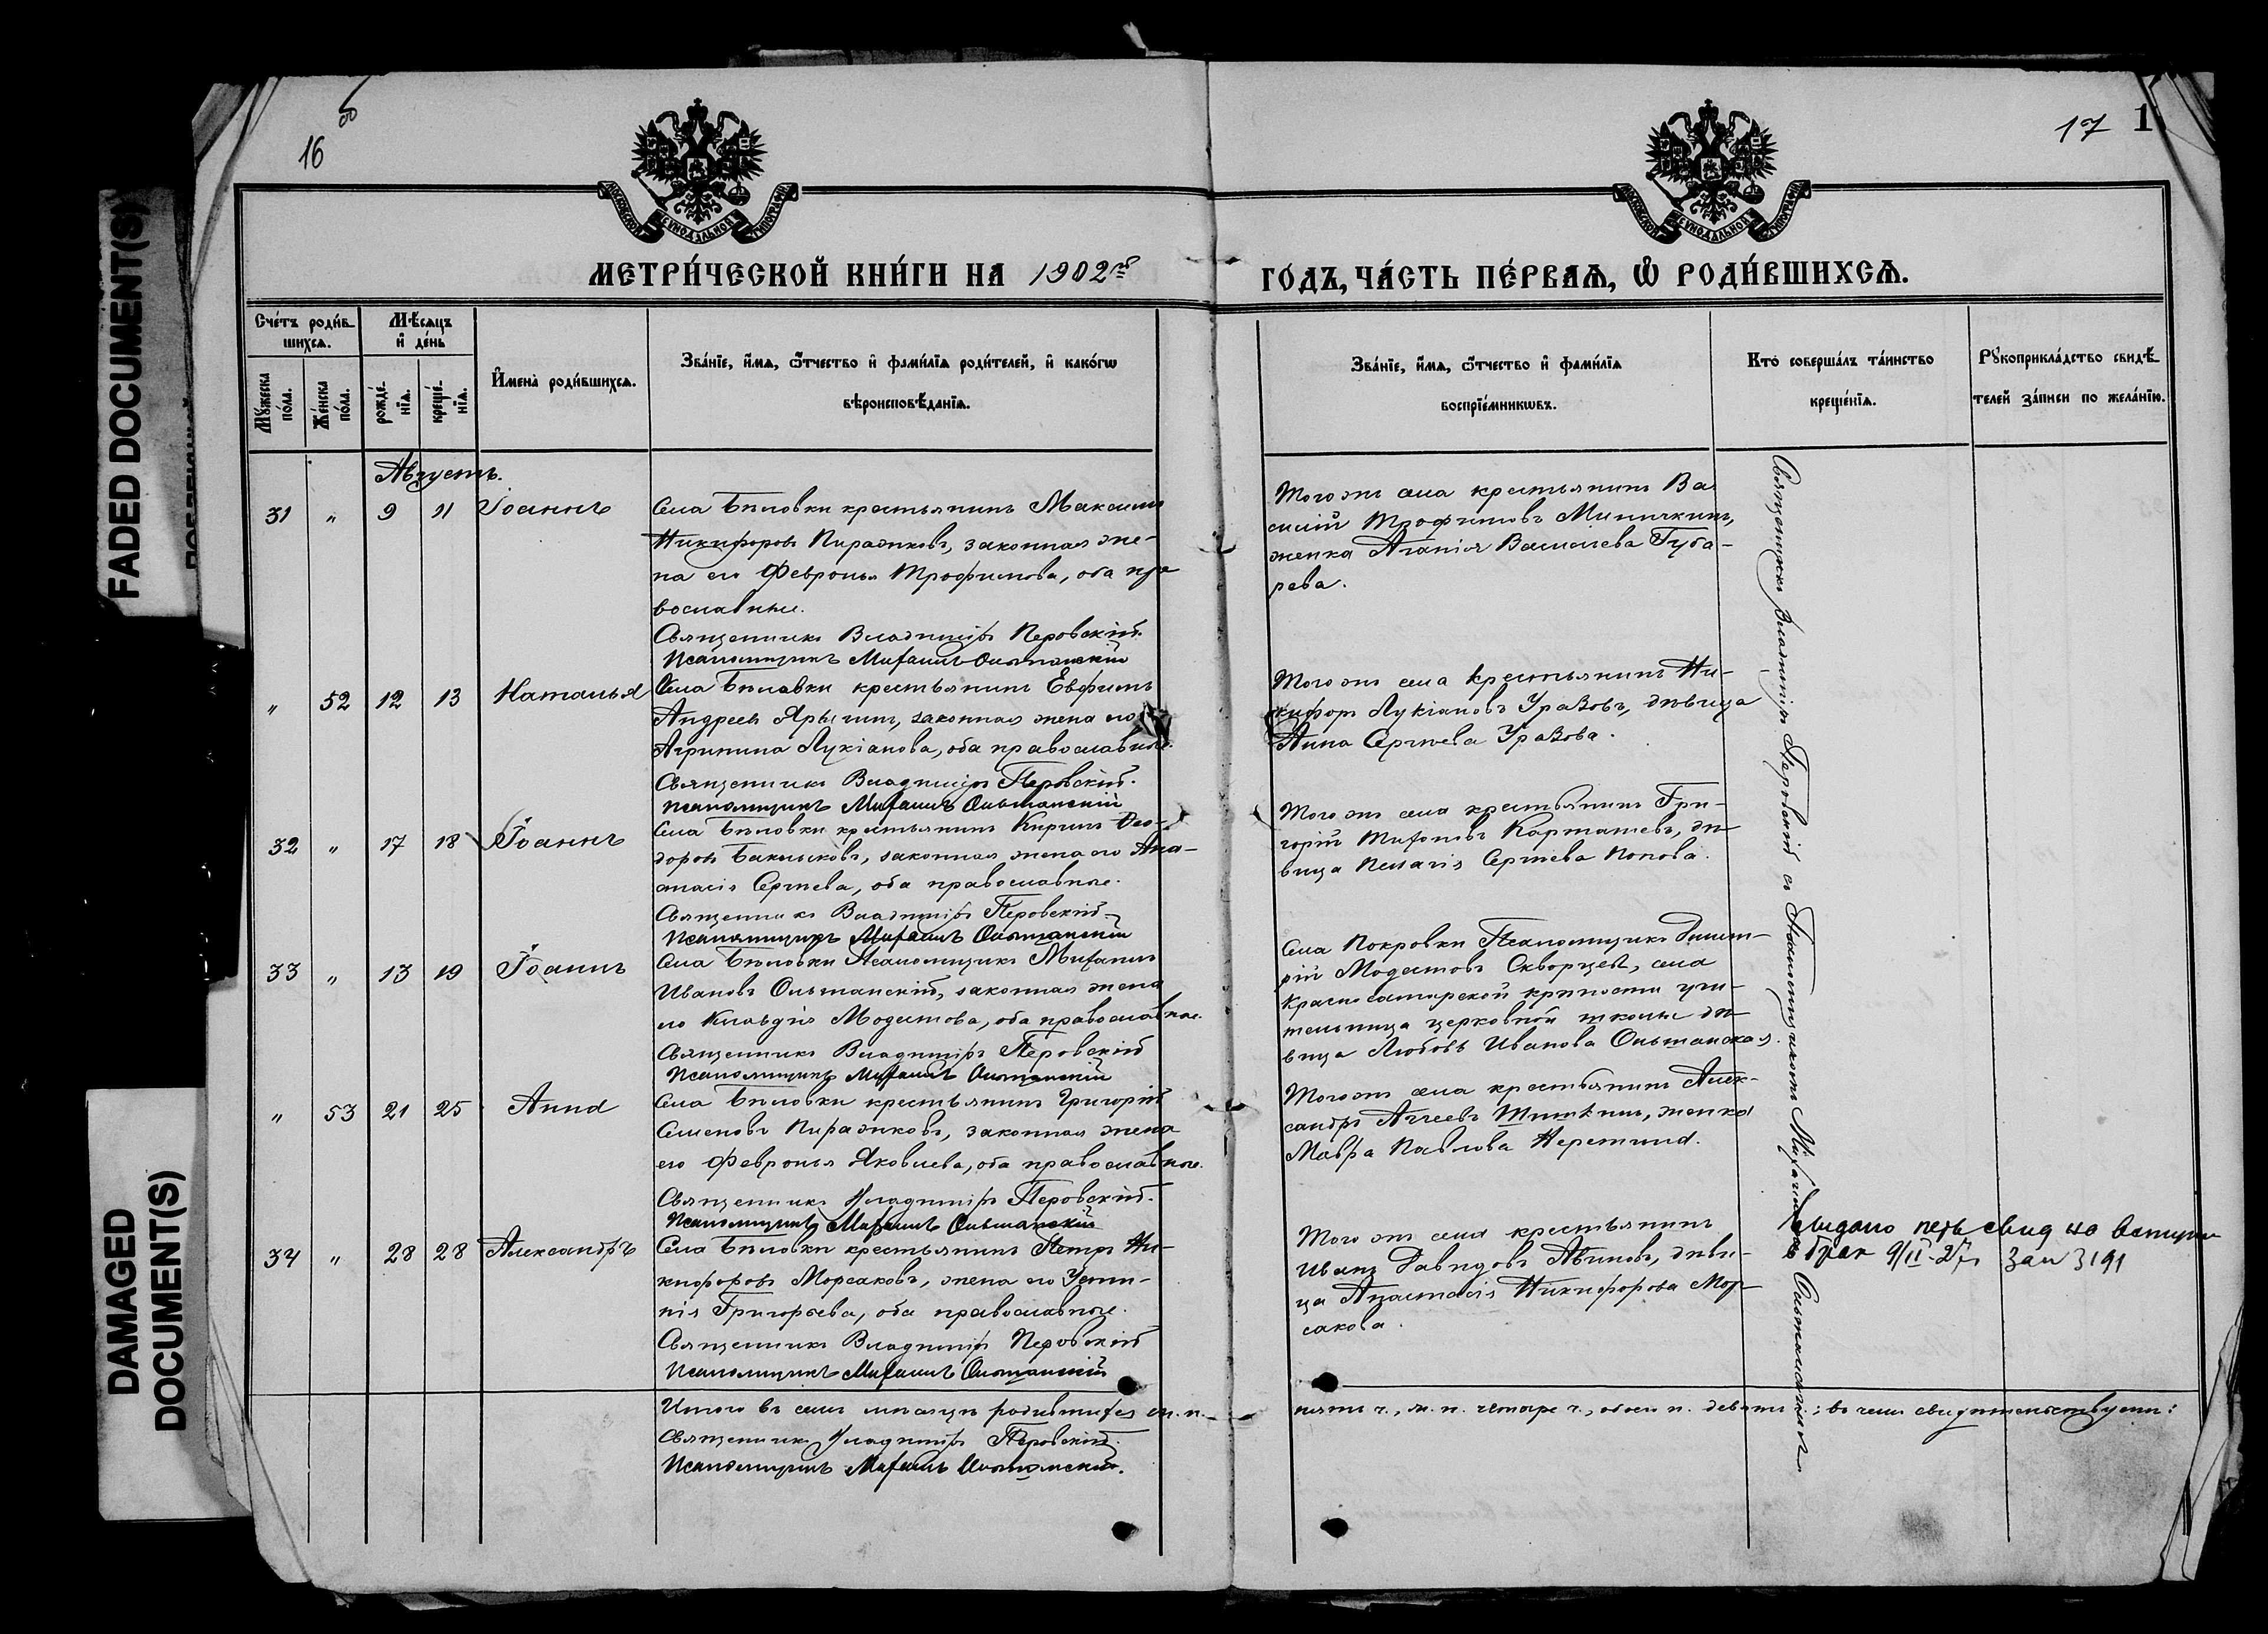 FADED DOCUMENT(S)
DAMAGED
DOCUMENT(S)
16 об
17 1
МОСКОВСКОЙ СѴНОДАЛЬНОЙ ТИПОГРАФІИ
МОСКОВСКОЙ СѴНОДАЛЬНОЙ ТИПОГРАФІИ
МЕТРИ́ЧЕСКОЙ КНИ́ГИ НА 1902й
ГО́ДЪ, ЧА́СТЬ ПЕ́РВАЯ, Ѡ РОДИ́ВШИХСЯ.
Сче́тъ роди́в-
шихся.
Му́жеска по́ла.
Же́нска по́ла.
Мѣ́сяцъ
и де́нь
рожде́-
нїя.
креще́-
нїя.
Имена̀ роди́вшихся.
Зва́нїе, и́мя, ѻ҆́тчество и фами́лїя роди́телей, и како́гѡ
вѣроисповѣ́данїя.
Зва́нїе, и́мя, ѻ҆́тчество и фами́лїя
воспрїе́мникѡвъ.
Кто̀ соверша́лъ та́инство
креще́нїя.
Рꙋкоприкла́дство свидѣ́-
телей за́писи по жела́нїю.
Августъ.
31 " 9 11 Іоаннъ
Села Бѣловки крестьянинъ Максимъ
Никифоровъ Пиражковъ, законная же-
на его Февронья Трофимова, оба пра
вославные.
Священникъ Владиміръ Перовскій.
Псаломщикъ Михаилъ Ольшанскій
Того же села крестьянинъ Ва-
силій Трофимовъ Миничкинъ,
женка Агапія Васильева Губа-
рева.
" 52 12 13 Наталья
Села Бѣловки крестьянинъ Евфимъ
Андреевъ Ярыгинъ, законная жена его
Агрипина Лукіанова, оба православные.
Священникъ Владиміръ Перовскій.
Псаломщикъ Михаилъ Ольшанскій
Того же села крестьянинъ Ни-
кифоръ Лукіановъ Уразовъ, дѣвица
Анна Сергѣева Уразова.
32 " 17 18 Іоаннъ
Села Бѣловки крестьянинъ Кирилъ Фео-
доровъ Баклыковъ, законная жена его Ана-
стасія Сергѣева, оба православные.
Священникъ Владиміръ Перовскій
Псаломщикъ Михаилъ Ольшанскій
Того же села крестьянинъ Гри-
горій Тихоновъ Карташевъ, дѣ-
вица Пелагія Сергѣева Попова.
33 " 13 19 Іоаннъ
Села Бѣловки Псаломщикъ Михаилъ
Ивановъ Ольшанскій, законная жена
его Клавдія Модестова, оба православные.
Священникъ Владиміръ Перовскій
Псаломщикъ Михаилъ Ольшанскій
Села Покровки Псаломщикъ Димит-
рій Модестовъ Скворцевъ, села
Красносамарской крѣпости учи-
тельница церковной школы дѣ-
вица Любовь Иванова Ольшанская.
" 53 21 25 Анна
Села Бѣловки крестьянинъ Григорій
Семеновъ Пиражковъ, законная жена
его Февронья Яковлева, оба православные.
Священникъ Владиміръ Перовскій.
Псаломщикъ Михаилъ Ольшанскій
Того же села крестьянинъ Алек-
сандръ Аггеевъ Тишкинъ, женка
Мавра Павлова
34 " 28 28 Александръ
Села Бѣловки крестьянинъ Петръ Ни-
кифоровъ Морсаковъ, жена его Усти-
нія Григорьева, оба православные.
Священникъ Владиміръ Перовскій
Псаломщикъ Михаилъ Ольшанскій
Того же села крестьянинъ
Иванъ Давидовъ Авиновъ, дѣви-
ца Анастасія Никифорова Мор-
сакова.
Священникъ Владиміръ Перовскій съ Псаломщикомъ Михаиломъ Ольшанскимъ
Выдано свид
брак 9/II-27г за № 3191
Итого въ семъ мѣсяцѣ родившихся м. п.
пять ч., ж. п. четыре ч., обоего п. девять ч.; въ чемъ свидѣтельствуемъ:
Священникъ Владиміръ Перовскій.
Псаломщикъ Михаилъ Ольшанскій.